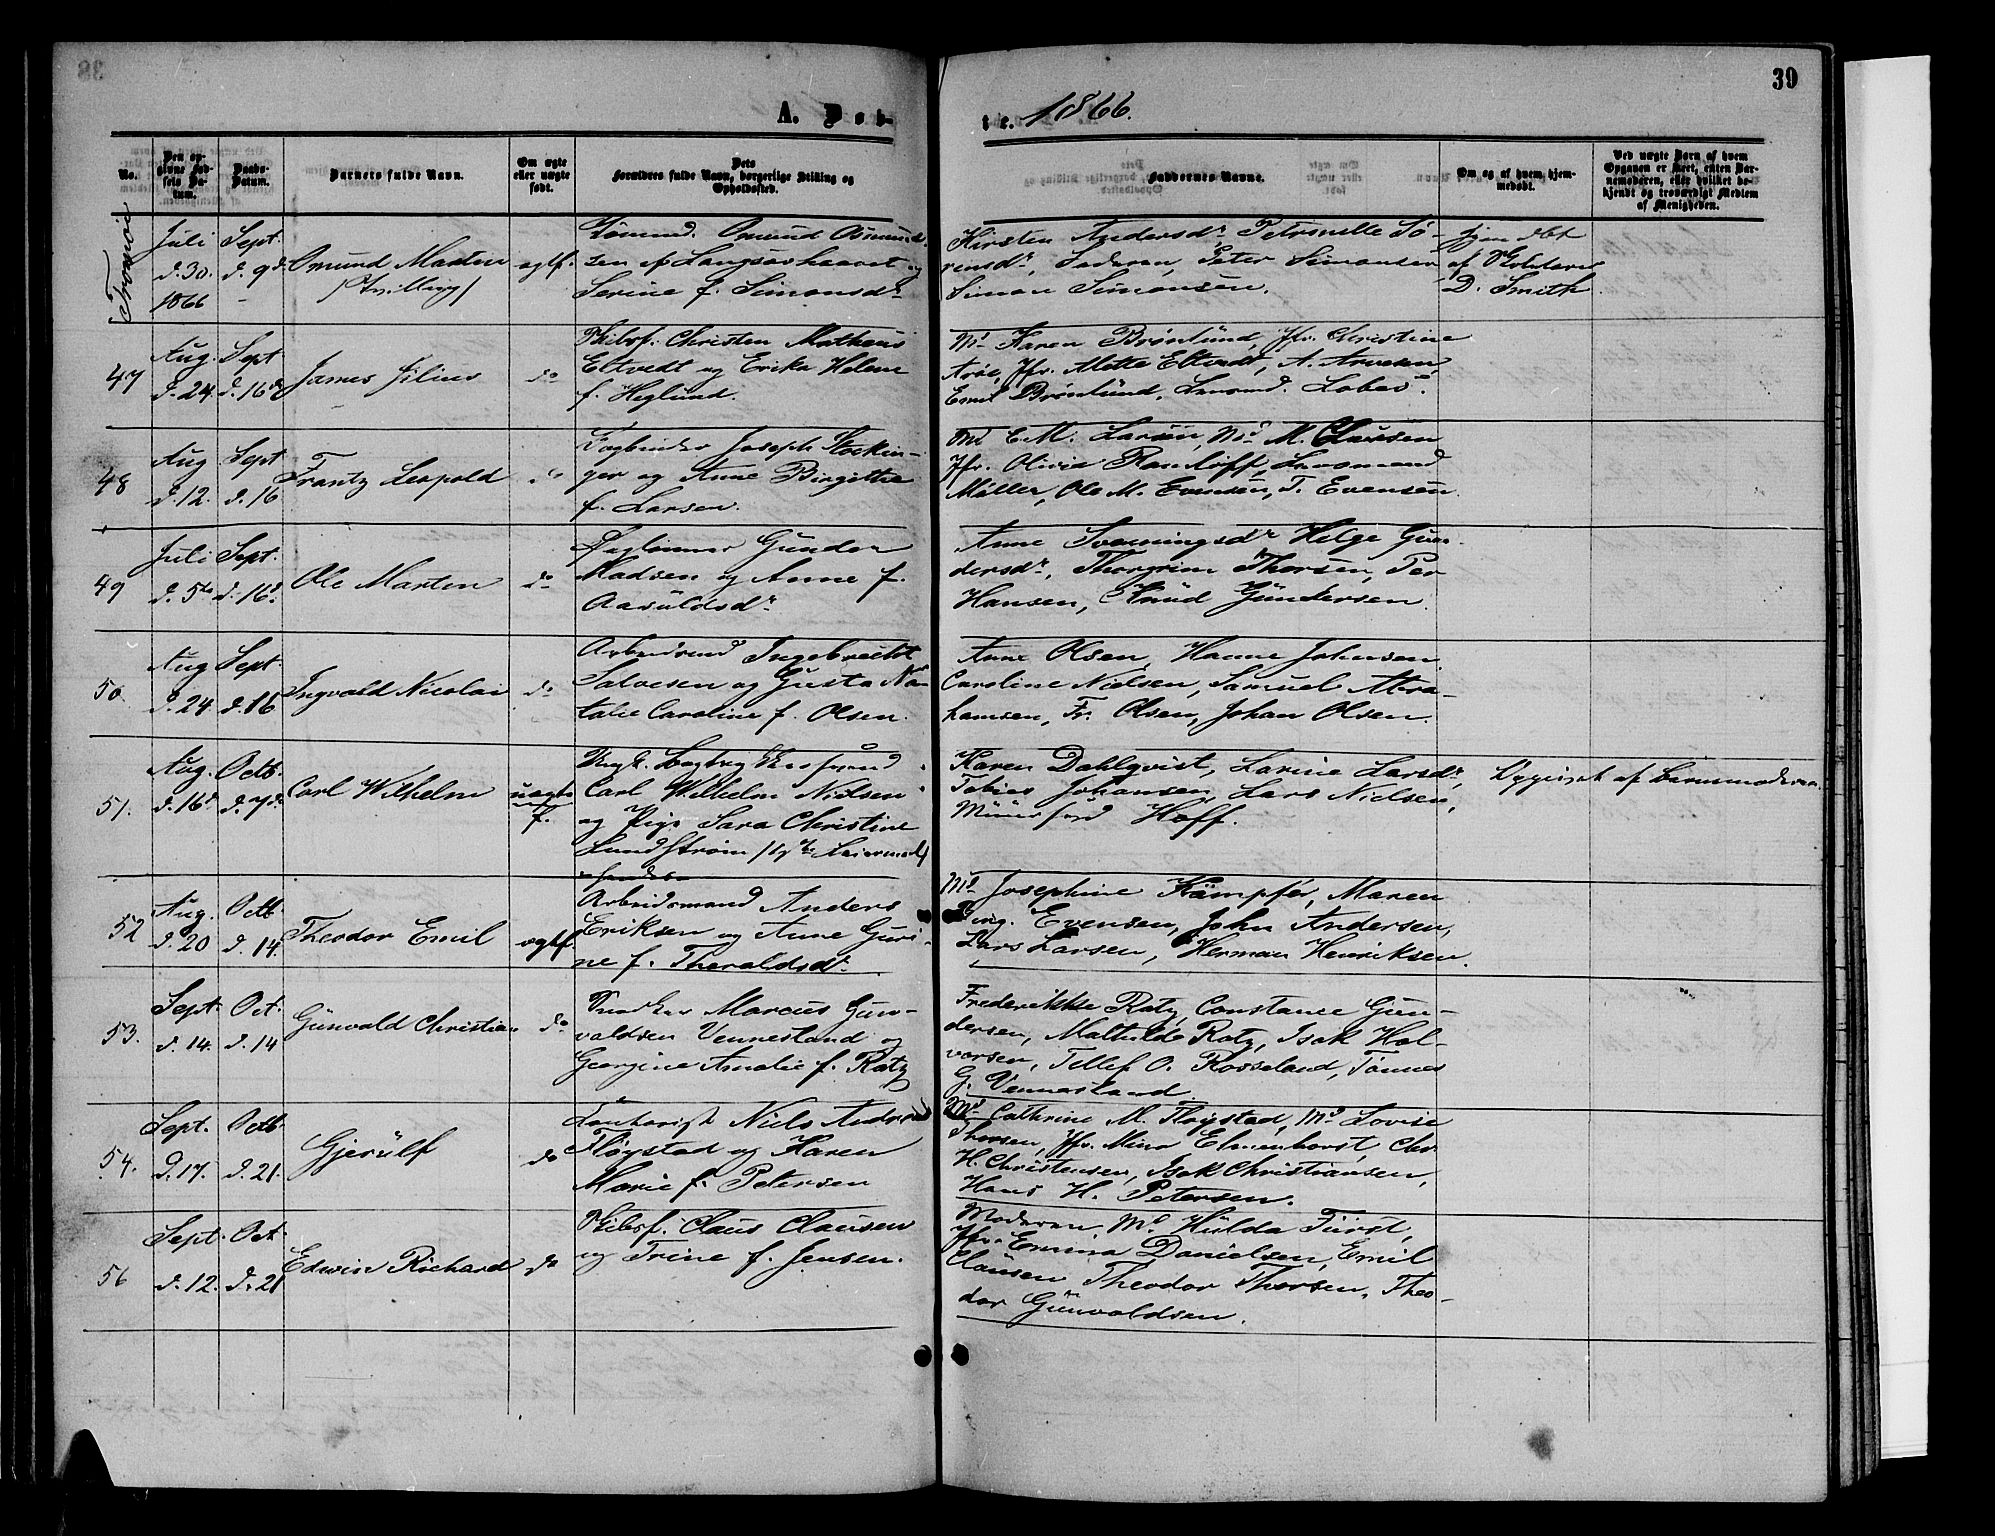 39
A. Døb-
te. 1866.
No.
Den op-
givne Fød-
sels Da-
tum.
Daabs-
Datum.
Barnets fulde Navn.
Om ægte
eller uægte
født.
Dets
Forældres fulde Navn, borgerlige Stilling og
Opholdssted.
Faddernes Navne.
Om og af hvem hjem-
medøbt.
Ved uægte Børn af hvem
Opgaven er skeet, enten Bar-
nemoderen, eller hvilket be-
kjendt og troværdigt Medlem
af Menigheden.
Tromøe
Juli
d. 30.
1866
Sept.
d. 9d
Omund Marten
/Tvilling/
ægtf.
Tømmd. Omund Osmund-
sen på Langsæhaavet og
Serine f. Simonsdr
Kirsten Andersdr, Petronelle Sø-
rensdr, Faderen, Peter Simonsen
Simon Simonsen.
hjemdbt
af
D. Smith
47
Aug.
d. 24.
Sept
d. 16d
James Julius
do
Skibsf. Christen Matheus
Eltvedt og Erika Helene
f. Heglund.
Md Karen Brønlund, Jfr. Christine
Jfr. Mette Eltvedt, A. Arvesen
Emil Brønlund,
48
Aug
d. 12.
Sept
d. 16
Frantz Leopold
do
Bogbinder Joseph Stockin-
ger og Anne Birgitte
f. Larsen.
Md E. M. Larsen, Md M. Claussen
Jfr. Olivia Randløff,
Møller, Ole M. Evensen, T. Evensen.
49
Juli
d. 5te
Sept.
d. 16d.
Ole Marten
do
Daglønner Gunder
Madsen og Anne f.
Aasuldsdr
Anne Svenningsdr Helge Gun-
dersdr, Thorgrim Thorsen, Per
Hansen, Knud Gundersen.
50.
Aug
d. 24
Sept.
d. 16
Ingvald Nicolai
do
Arbeidsmd Ingebrecht
Salvesen og Gusta Na-
talie Caroline f. Olsen.
Anne Olsen, Hanne Johnsen.
Caroline Nielsen, Samuel Abra-
hamsen, Fr. Olsen, Johan Olsen.
51.
Aug.
d. 16d
Octb.
d. 7de
Carl Wilhelm
uægte
f.
Ungk.
Carl Wilhelm Nielsen
og Pige Sara Christine
Lundstrøm
Karen Dahlqvist, Larine Larsdr,
Tobias Johansen, Lars Nielsen,
Hoff.
Opgivet af Barnemoderen.
52
Aug.
d. 20
Octb.
d. 14.
Theodor Emil
ægtf.
Arbeidsmand Anders
Eriksen og Anne Guri-
ne f. Theraldsdr.
Md Josephine Kämpfer, Maren
Ing. Evensen, John Andersen,
Lars Larsen, Herman Henriksen.
53.
Sept.
d. 14.
Oct.
d. 14
Gunvald Christian
do
Snedker Marcus Gun-
valdsen Vennesland og
Georgine Amalie f. Ratz
Frederikke Ratz, Constance Gun-
dersen, Mathilde Ratz, Isak Hal-
vorsen, Tellef O. Rosseland, Tønnes
G. Vennesland.
54.
Sept.
d. 17.
Octb.
d. 21.
Gjerulf
do
Niels Andreas
Fløystad og Karen
Marie f. Petersen
Md Cathrine M. Fløystad, Md Lovise
Thorsen, Jfr. Mina Elmenhorst, Chr.
H. Christensen, Isak Christiansen,
Hans H. Petersen.
56
Sept.
d. 12.
Oct.
d. 21
Edwin Richard
do
Skibsf. Claus Clausen
og Trine f. Jensen.
Moderen, Md Hulda Fürst,
Jfr. Emma Danielsen, Emil
Clausen Theodor Thorsen, Theo-
dor Gunvaldsen.